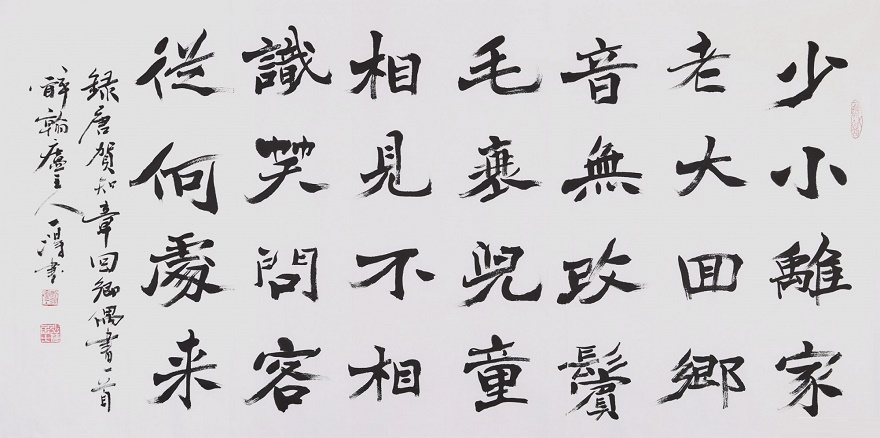 少小離家
老大回鄉
音無改鬢
毛衰兒童
相見不相
識笑問客
從何處来
録唐賀知章回鄉偶書一首
醉翰廬主人一書